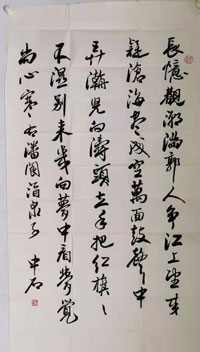 長憶觀潮滿郭人爭江上望来
疑滄海盡成空萬面鼓聲中
弄潮兒向濤頭立手把红旗〻
不濕别来幾向夢中看夢覺
尚心寒 右潘閬酒泉子 中石